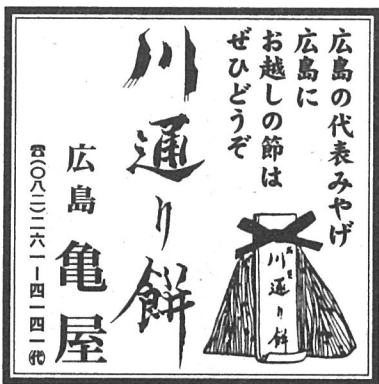 広島の代表みやげ
広島に
お越しの節は
ぜひどうぞ
川通り餅
川通り餅
広島 亀屋
☎(〇八二)二六一ー四一四一㈹